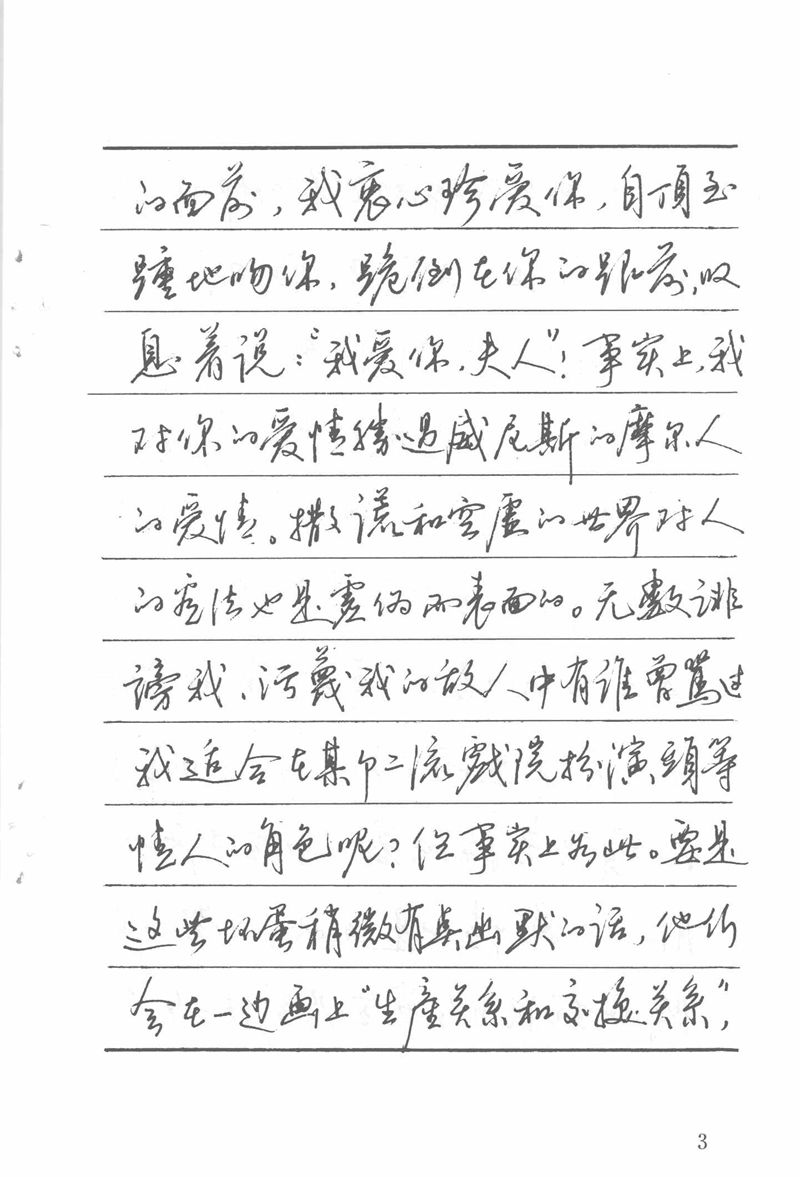 的面前，我衷心珍爱你，自頂至
踵地吻你，跪倒在你的跟前，叹
息着说：“我爱你，夫人”！事实上，我
对你的爱情勝过威尼斯的摩尔人
的爱情。撒谎和空虚的世界对人
的看法也是虚伪而表面的。无數誹
謗我、污衊我的敌人中有谁曾罵过
我适合在某个二流戲院扮演頭等
情人的角色呢？但事实上如此。要是
这些坏蛋稍微有點幽默的话，他们
会在一边画上“生產关系和交换关系”，
3